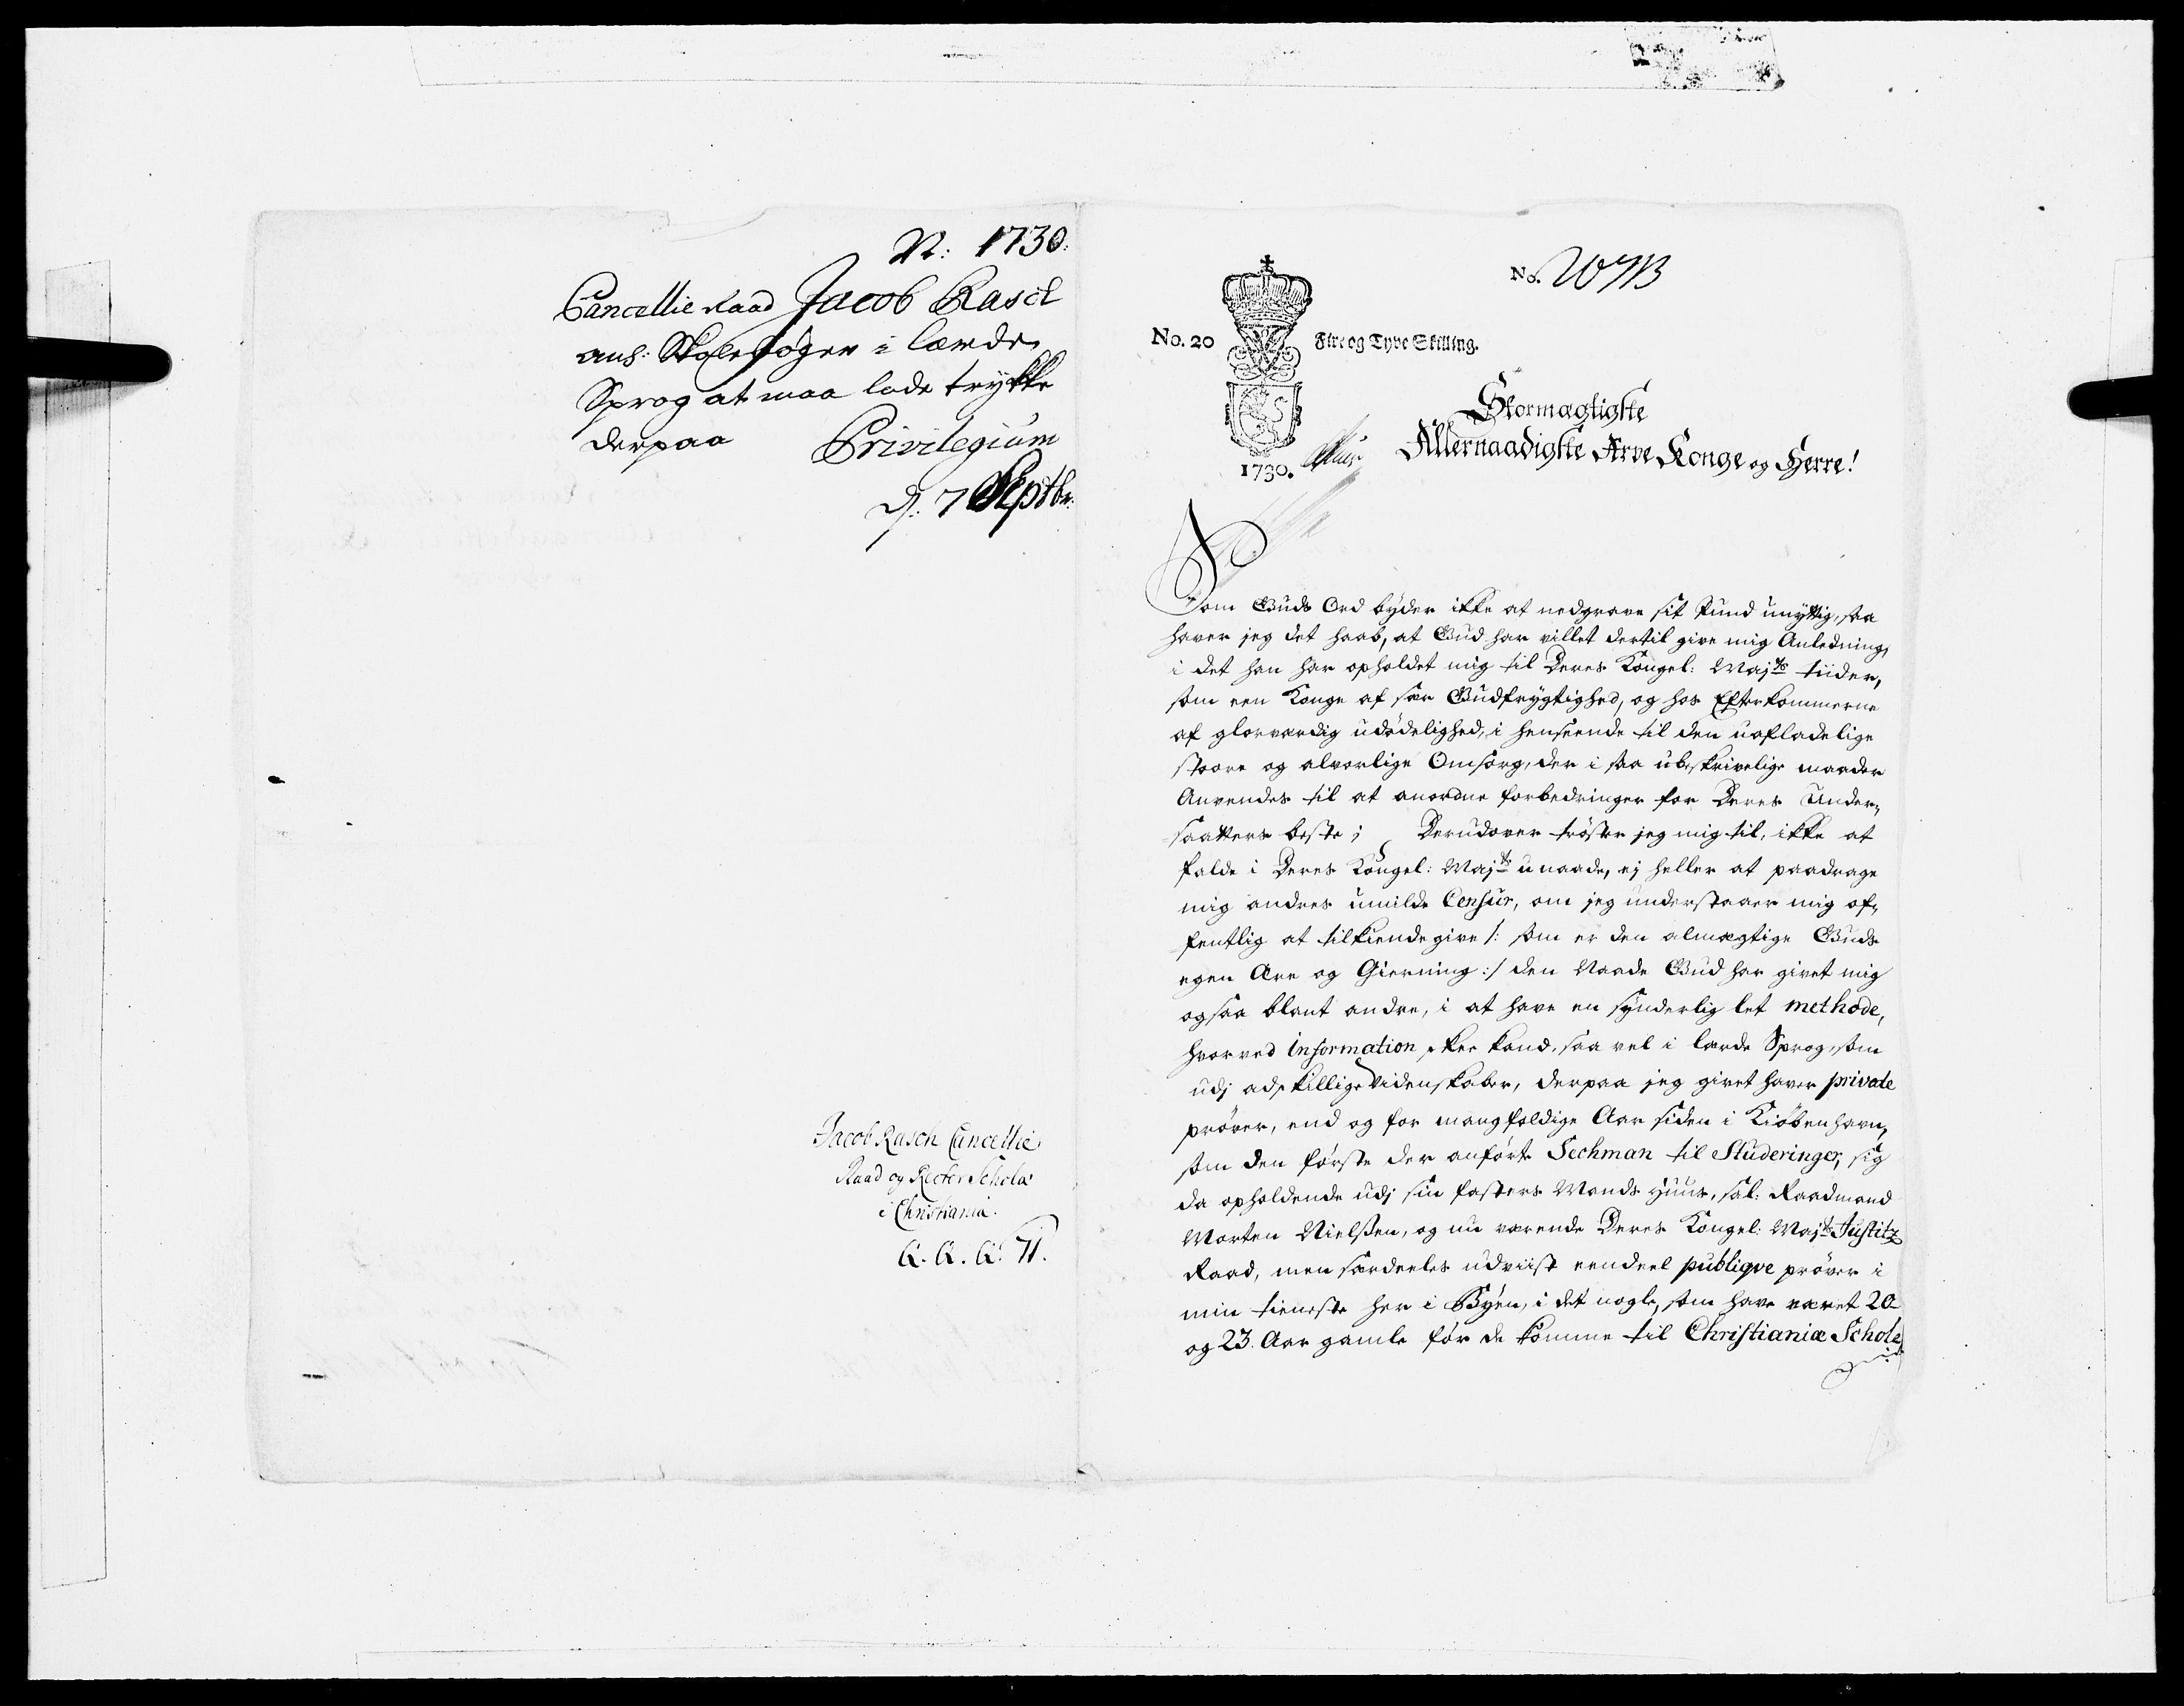 N: 1730.
Cancellie Raad Jacob Rasch
ans: Skolebøger i lærde
Sprog at maa lade trykke
derpaa Privilegium
d: 7 Septbr:
Jacob Rasch Cancellie
Raad og Rector Scholæ
i Christiania.
No.
No. 20 Fire og Tyve Skilling.
1730.
Stormægtigste
Allernaadigste Arve Konge og Herre!
Som Guds Ord byder ikke at nedgrave sit Pund unyttig, saa
haver jeg det haab, at Gud har villet dertil give mig Anledning,
i det han har opholdet mig til Deres Kongel: Majts tiider,
som een Konge af sær Gudfrygtighed, og hos Efterkommerne
af glorværdig udødelighed, i henseende til den uafladelige
stoore og alvorlige Omsorg, der i saa ubeskrivelige maader
Anvendes til at anordne forbedringer for Deres Under-
saatters beste; Derudover trøster jeg mig til, ikke at
falde i Deres Kongel: Majts unaade, ej heller at paadrage
mig andres umilde Censur, om jeg understaaer mig of-
fentlig at tilkiende give /: som er den almægtige Guds
egen Ære og Gierning :/ den Naade Gud har givet mig
ogsaa blant andre, i at have en synderlig let methode,
hvorved information skee kand, saa vel i lærde Sprog, som
udj adskillige Videnskaber, derpaa jeg givet haver private
prøver, end og for mangfoldige Aar siden i Kiøbenhavn,
som den første der anførte Sechman til Studeringer, sig
da opholdende udj sin fasters Mands Huus, sal: Raadmand
Morten Nielsen, og nu værende Deres Kongel: Majts Justitz
Raad, men særdeeles udviist eendeel publiqve prøver i
min tieneste her i Byen, i det nogle, som have været 20
og 23 Aar gamle før de komme til Christianiæ Schole